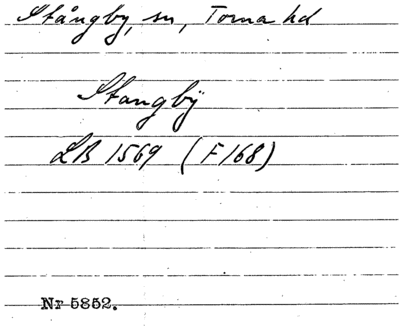 Stångby, sn, Torna hd
Stangbÿ
LB 1569 (F168)
Nr 5852.